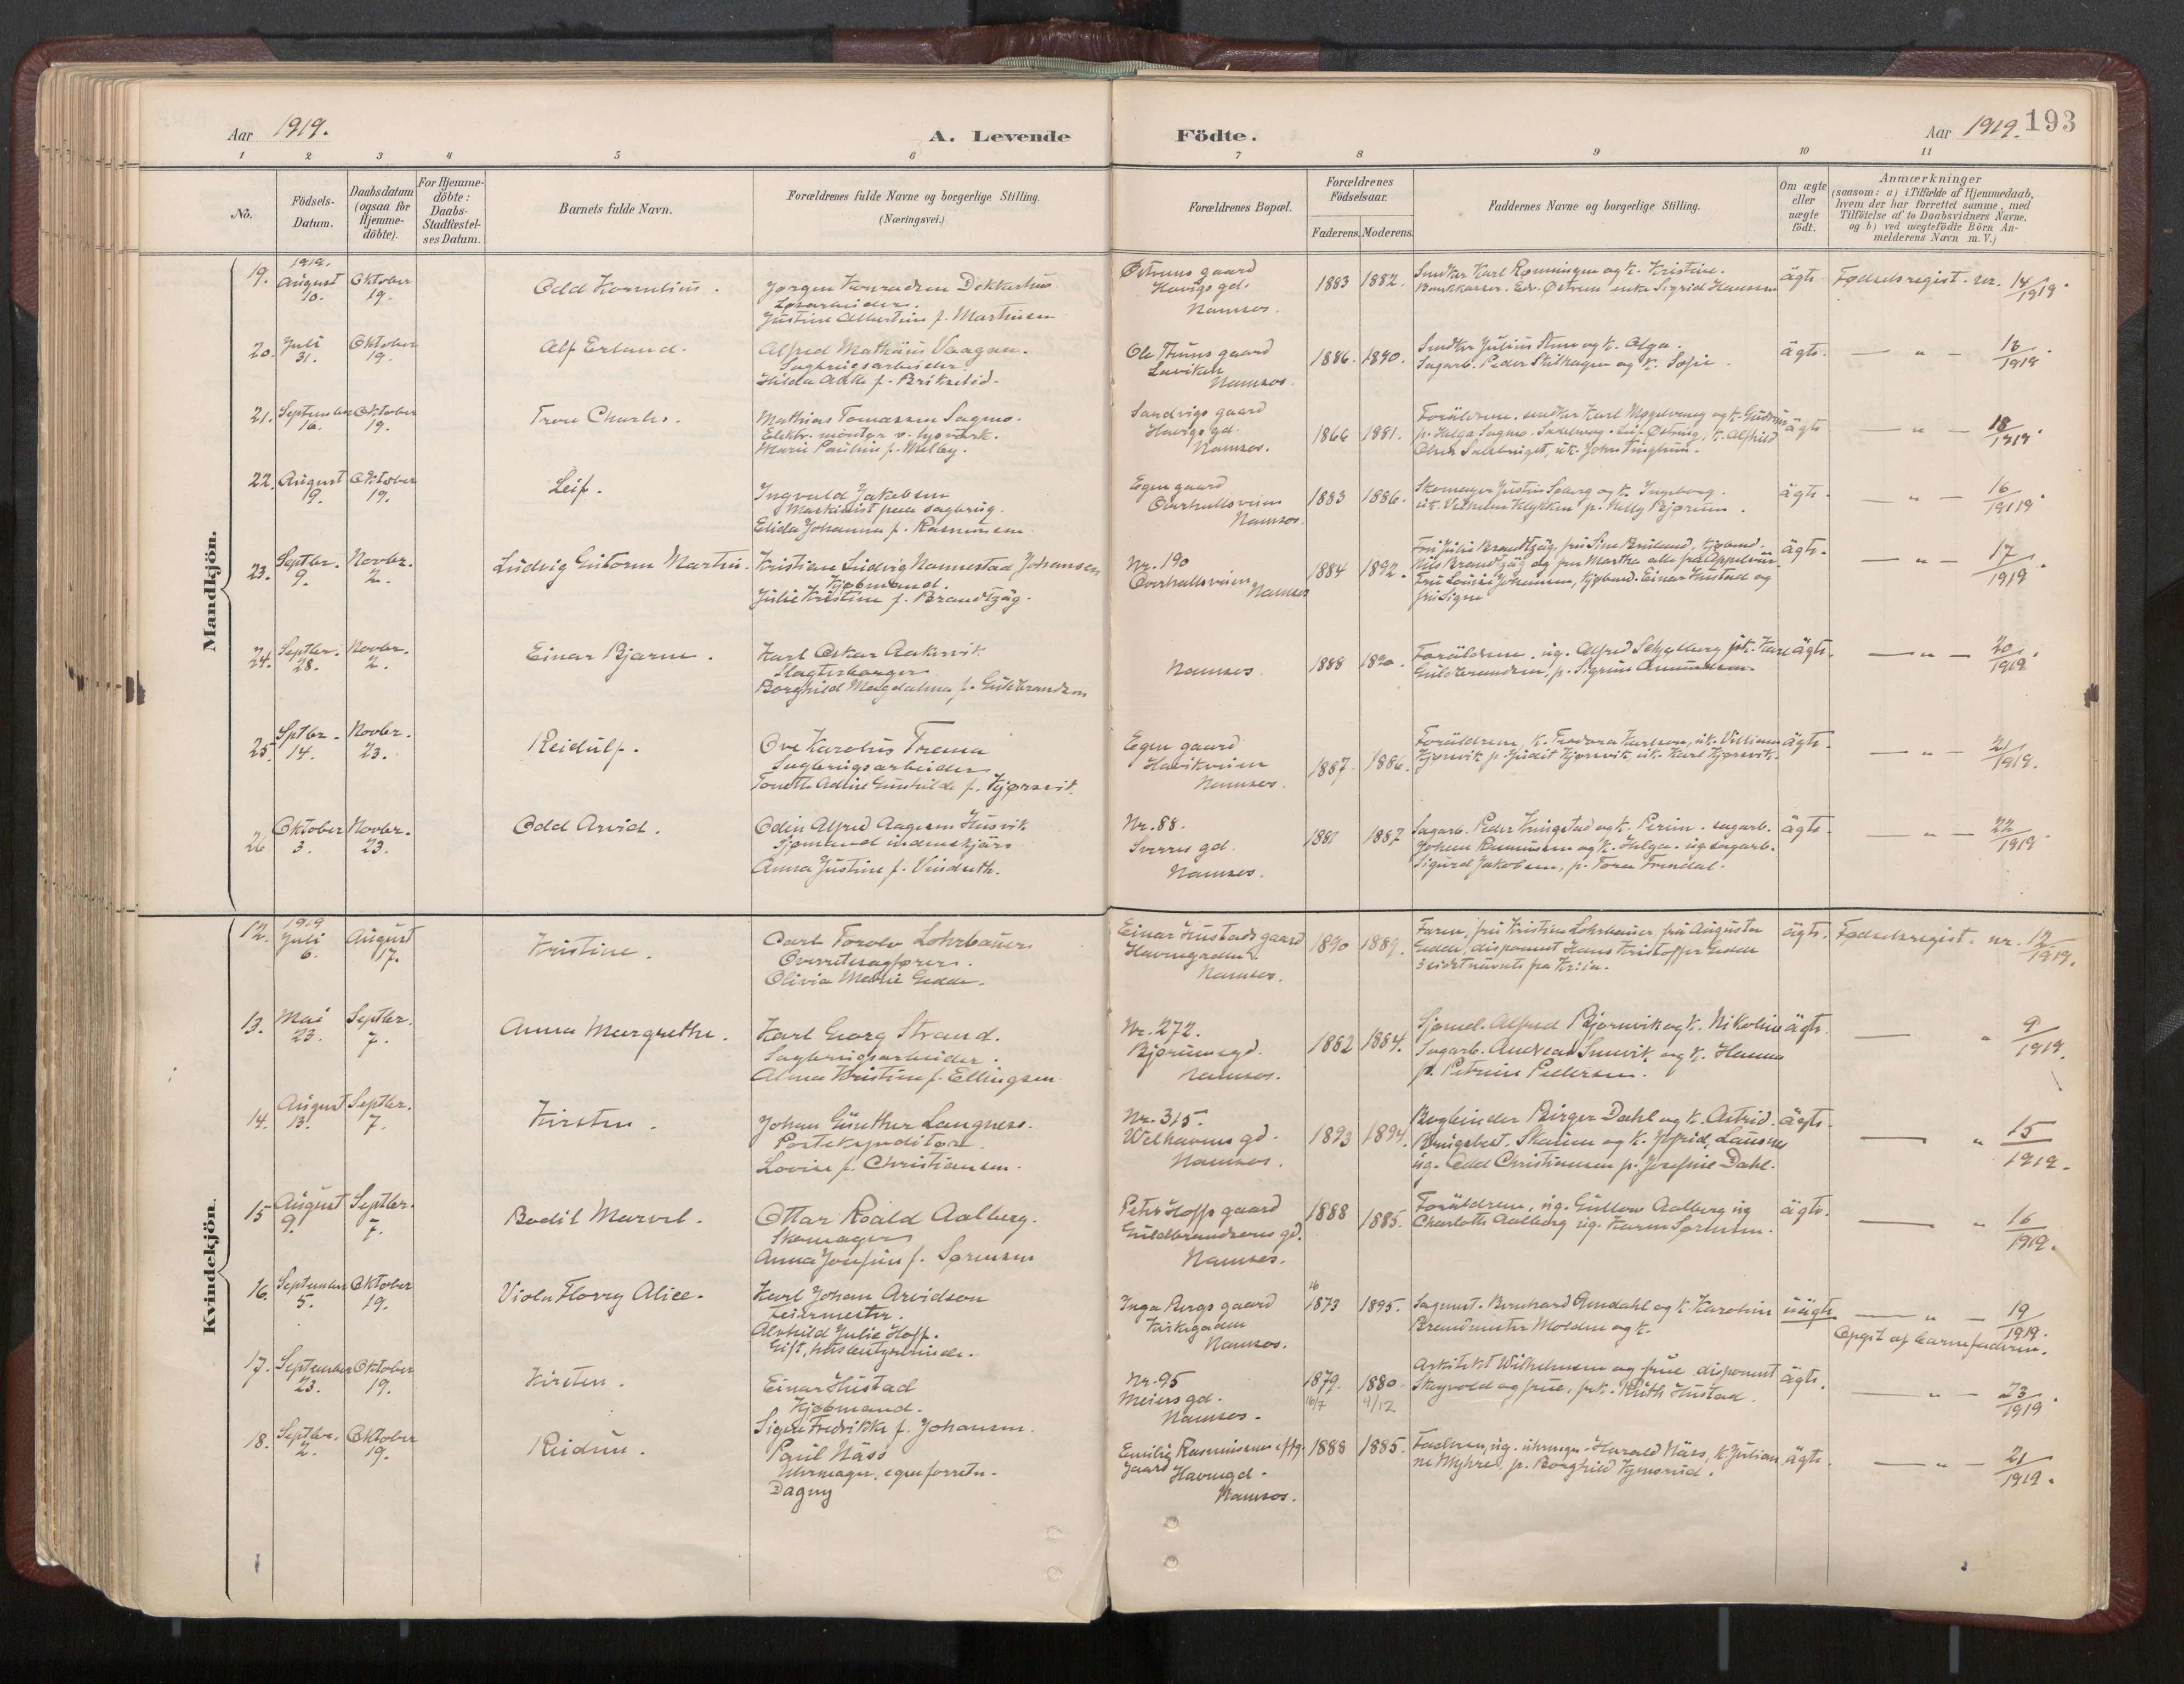 Aar 1919.
A. Levende Födte.
Aar 1919. 193
1 2 3 4 5 6 7 8 9 10 11
No.
Födsels-Datum.
Daabsdatum (ogsaa for Hjemme-döbte).
For Hjemme-döbte: Daabs-Stadfæstel-ses Datum.
Barnets fulde Navn.
Forældrenes fulde Navne og borgerlige Stilling.
(Næringsvei.)
Forældrenes Bopæl.
Forældrenes Födselsaar.
Faderens. Moderens.
Faddernes Navne og borgerlige Stilling.
Om ægte eller uægte födt.
Anmærkninger
(saasom: a) i Tilfælde af Hjemmedaab,
hvem der har forrettet samme, med
Tilföielse af to Daabsvidners Navne,
og b) ved uægtefödte Börn An-
melderens Navn m. V.)
Mandkjön.
19. 1919. August 10. Oktober 19.
Odd Kornelius.
Jørgen Konradsen Dekkerhus
Løsarbeider.
Justine Albertine f. Martinsen
Østrums gaard
Havigs gd.
Namsos.
1883 1882.
Snedker Karl Rønningen og k. Kristine.
Bankkasser. Edv. Østrum enke Sigrid Hansen
ägte Fødselsregist. nr. 14/1919.
20. Juli 31. Oktober 19.
Alf Erland.
Alfred Mathäus Vaagan.
Sagbrugsarbeider
Ole Thuns gaard
Laviken
Namsos.
1886. 1890.
Snedker Julius Stene og k. Olga.
Sagarb. Peder Skilhagen og k. Sofie.
ägte. — " — 13/1919.
21. September 16. Oktober 19.
Tron Charles.
Mathias Tomassen Sagmo.
Elektr. montør v. lysverk.
Marie Pauline f. Melby.
Sandvigs gaard
Havigs gd.
Namsos.
1866 1881.
ägte — " — 18/1919.
22. August 19. Oktober 19.
Leif.
Ingvald Jakobsen
Maskinist paa sagbrug.
Elida Johanna f. Rasmussen
Egen gaard
Overhallsveien
Namsos.
1883 1886.
Skomager Justin Soberg og k. Ingeborg.
ägte. — " — 16/1919.
23. Septbr. 9. Novbr. 2.
Ludvig Gutorm Martin.
Kristian Ludvig Nannestad Johansen
Kjøbmand.
Julie Kristine f. Brandtzäg.
Nr. 190
Overhallsveien
Namsos
1884 1892.
fru Signe
ägte. — " — 17/1919.
24. Septbr. 28. Novbr. 2.
Einar Bjarne.
Karl Oskar Aakervik
Slagterborger
Borghild Magdalena f. Guldbrandsen
Namsos.
1888 1890.
Foräldrene. ug. Alfred Schjelberg
Guldbrandsen, p. Sigrun Amundsen.
ägte. — " — 20/1919.
25. Sptbr. 14. Novbr. 23.
Reidulf.
Ove Karolius Trema
Sagbrugsarbeider
Egen gaard
Havikveien
Namsos.
1887. 1886.
Foräldrene, k. Teodora Karlson, uk. Villiam
Kjørsvik p. Judit Kjørsvik, uk. Karl Kjørsvik.
ägte. — " — 21/1919.
26. Oktober 3. Novbr. 23.
Odd Arvid.
Odin Alfred Aagesen Husvik
Sjømand indenskjärs
Anna Justine f. Vinduth.
Nr. 88.
Sverres gd.
Namsos.
1881 1887
Sagarb. Peder Kringstad og k. Perine. sagarb.
Johan Rasmussen og k. Helga. ug sagarb.
Sigurd Jakobsen, p. Tora Trindal.
ägte. — " — 22/1919.
Kvindekjön.
12. 1919 Juli 6. August 17.
Kristine.
Carl Torolv Lohrbauer
Overretssagfører.
Olivia Marie Gedde.
Einar Hustads gaard
Havnegaden
Namsos.
1890 1889.
Faren, fru Kristine Lohrbauer fru Augusta
Gedde, disponent Hans Kristoffer Gedde
3 sidstnævnte fra Kr.ia.
ägte. Fødselsregist. nr. 12/1919.
13. Mai 23. Septbr. 7.
Anna Margrethe.
Karl Georg Strand.
Sagbrugsarbeider.
Alma Kristine f. Ellingsen
Nr. 272.
Bjørums gd.
Namsos.
1882 1884.
Sjømd. Alfred Bjørnvik og k. Nikoline
Sagarb. Andreas Sunvik og k. Hanna
p. Petrine Pedersen.
ägte. — " 9/1919.
14. August 13. Septbr. 7.
Kirsten.
Johan Günther Langness.
Postekspeditør.
Lovise f. Christiansen.
Nr. 315.
Welhavens gd.
Namsos.
1893 1894.
Bogbinder Birger Dahl og k. Astrid.
ug. Odd Christiansen p. Josefine Dahl.
ägte. — " 15/1919.
15 August 9. Septbr. 7.
Bodil Marvel.
Ottar Roald Aalberg.
Skomager
Anna Josefine f. Sørensen
Peter Hoffs gaard
Guldbrandsens gd.
Namsos.
1888 1885.
Foräldrene, ug. Gullow Aalberg ug
Charlotte Aalberg ug. Karen Sørensen.
ägte. — " 16/1919.
16. September 5. Oktober 19.
Viola Florry Alice.
Karl Johan Arvidson
Feiermester.
Alvhild Julie Hoff.
Gift, husbestyrerinde.
Inga Bergs gaard
Kirkegaden
Namsos.
16 1873 1895.
Brandmester Molden og k.
uägte — " — 19/1919.
Opgit af barnefaderen.
17. September 23. Oktober 19.
Kirsten.
Einar Hustad
Kjøbmand.
Signe Fredrikke f. Johansen.
Nr. 95
Meiers gd.
Namsos.
1879. 16/7 1880 4/12
Arkitekt Wilhelmsen og frue disponent
Skogvold og frue, frk. Ruth Hustad.
ägte. — " — 23/1919.
18. Septbr. 2. Oktober 19.
Reidun.
Paul Näss
Uhrmager. egen forretn.
Dagny
Emilie Rasmussens eftf.
gaard Havnegd.
Namsos.
1888 1885.
Faderen, ug. uhrmager Harald Näss, k. Julian
ne Myhre, p. Borghild Kjensrud.
ägte. — " — 21/1919.